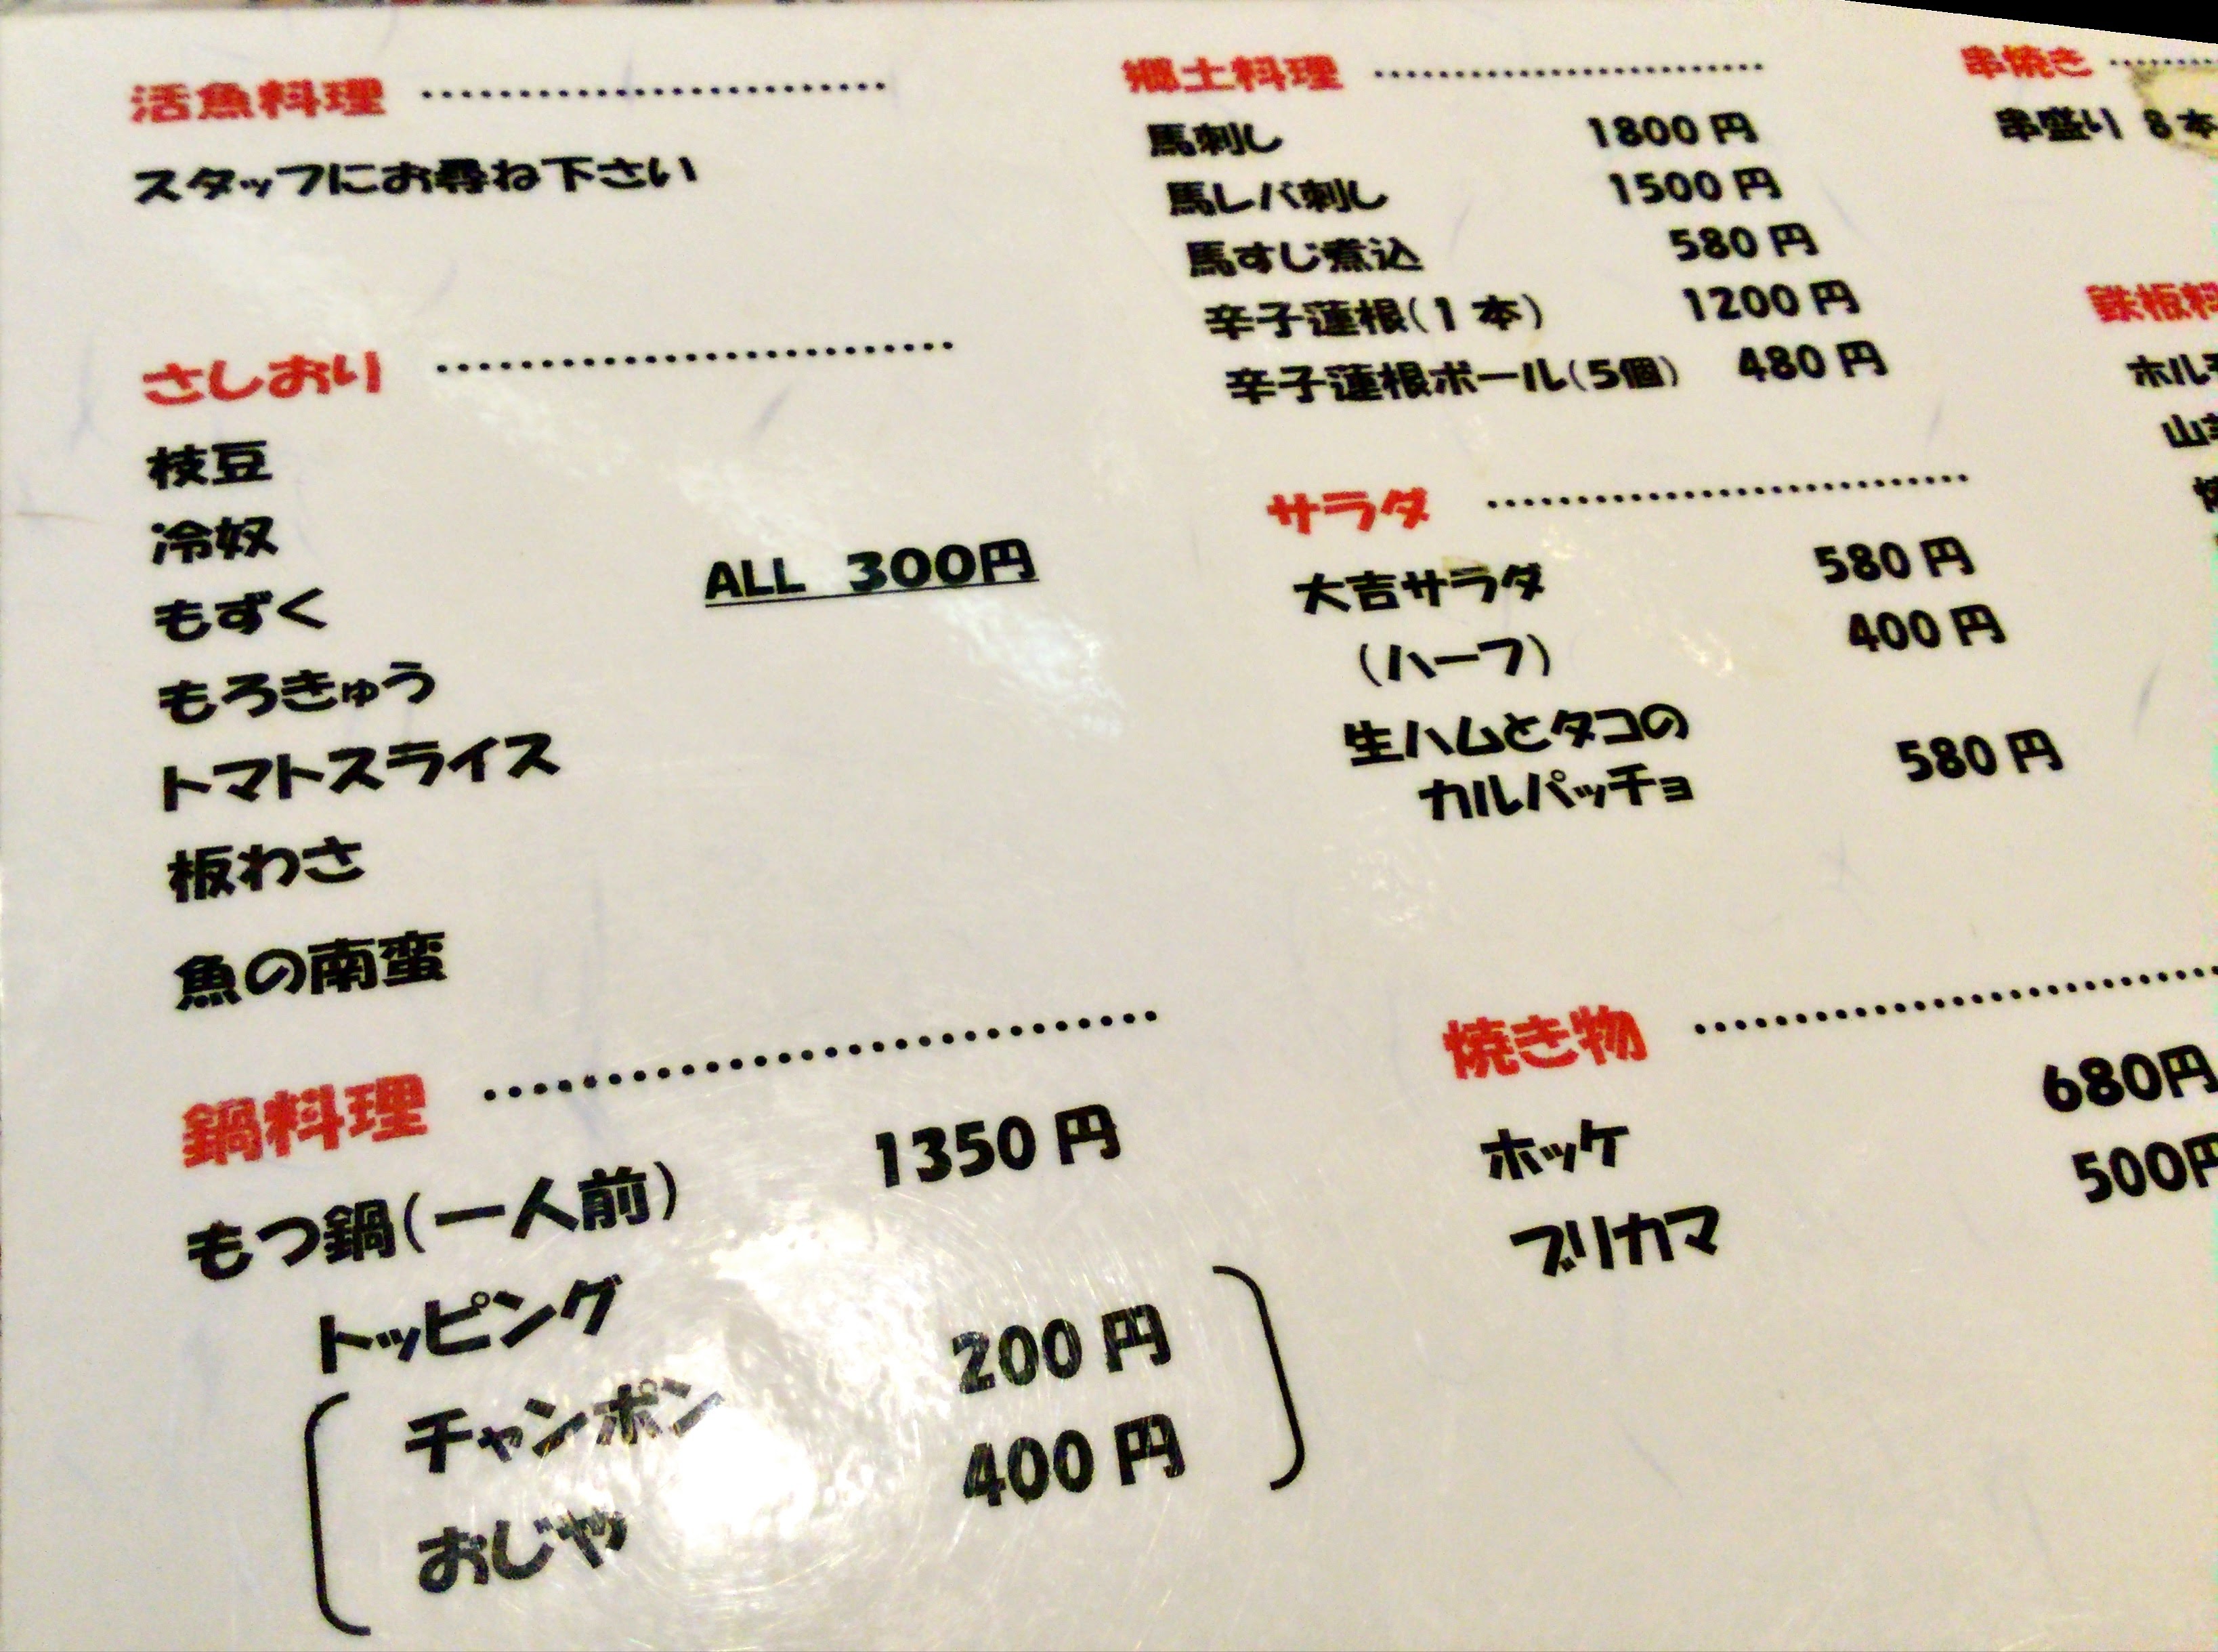 活魚料理
スタッフにお尋ね下さい
さしおり
枝豆
冷奴
もずく
ALL 300円
もろきゅう
トマトスライス
板わさ
魚の南蛮
鍋料理
もつ鍋(一人前) 1350円
トッピング
チャンポン 200円
おじや 400円
郷土料理
馬刺し 1800円
馬レバ刺し 1500円
馬すじ煮込 580円
辛子蓮根(1本) 1200円
辛子蓮根ボール(5個) 480円
サラダ
大吉サラダ 580円
(ハーフ) 400円
生ハムとタコの
カルパッチョ 580円
焼き物
ホッケ 680円
ブリカマ 500円
串焼き
串盛り 8本
鉄板料
ホルモ
山